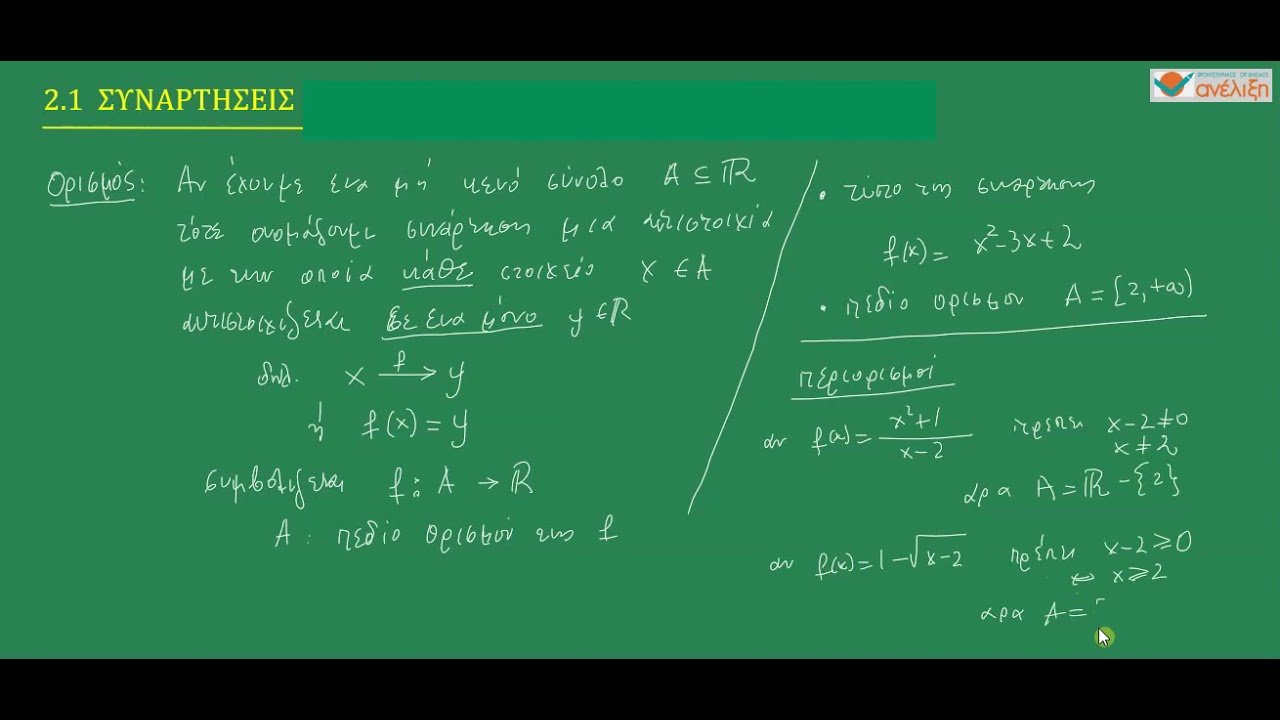 2.1 ΣΥΝΑΡΤΗΣΕΙΣ
ΦΡΟΝΤΙΣΤΗΡΙΑΚΟΣ ΟΡΓΑΝΙΣΜΟΣ
ανέλιξη
Ορισμός: Αν έχουμε ένα μή κενό σύνολο A ⊆ ℝ
τότε ονομάζουμε συνάρτηση μια αντιστοιχία
με την οποία κάθε στοιχείο x ∈ A
αντιστοιχίζεται σε ένα μόνο y ∈ ℝ
δηλ. x —f→ y
ή f(x) = y
συμβολίζεται f: A → ℝ
A: πεδίο ορισμού της f
• τύπο της συνάρτησης
f(x) = x² - 3x + 2
• πεδίο ορισμού A = [2, +∞)
περιορισμοί
αν f(x) = (x²+1)/(x-2) πρέπει x-2 ≠ 0
x ≠ 2
άρα A = ℝ - {2}
αν f(x) = 1 - √(x-2) πρέπει x-2 ≥ 0
⇔ x ≥ 2
άρα A =